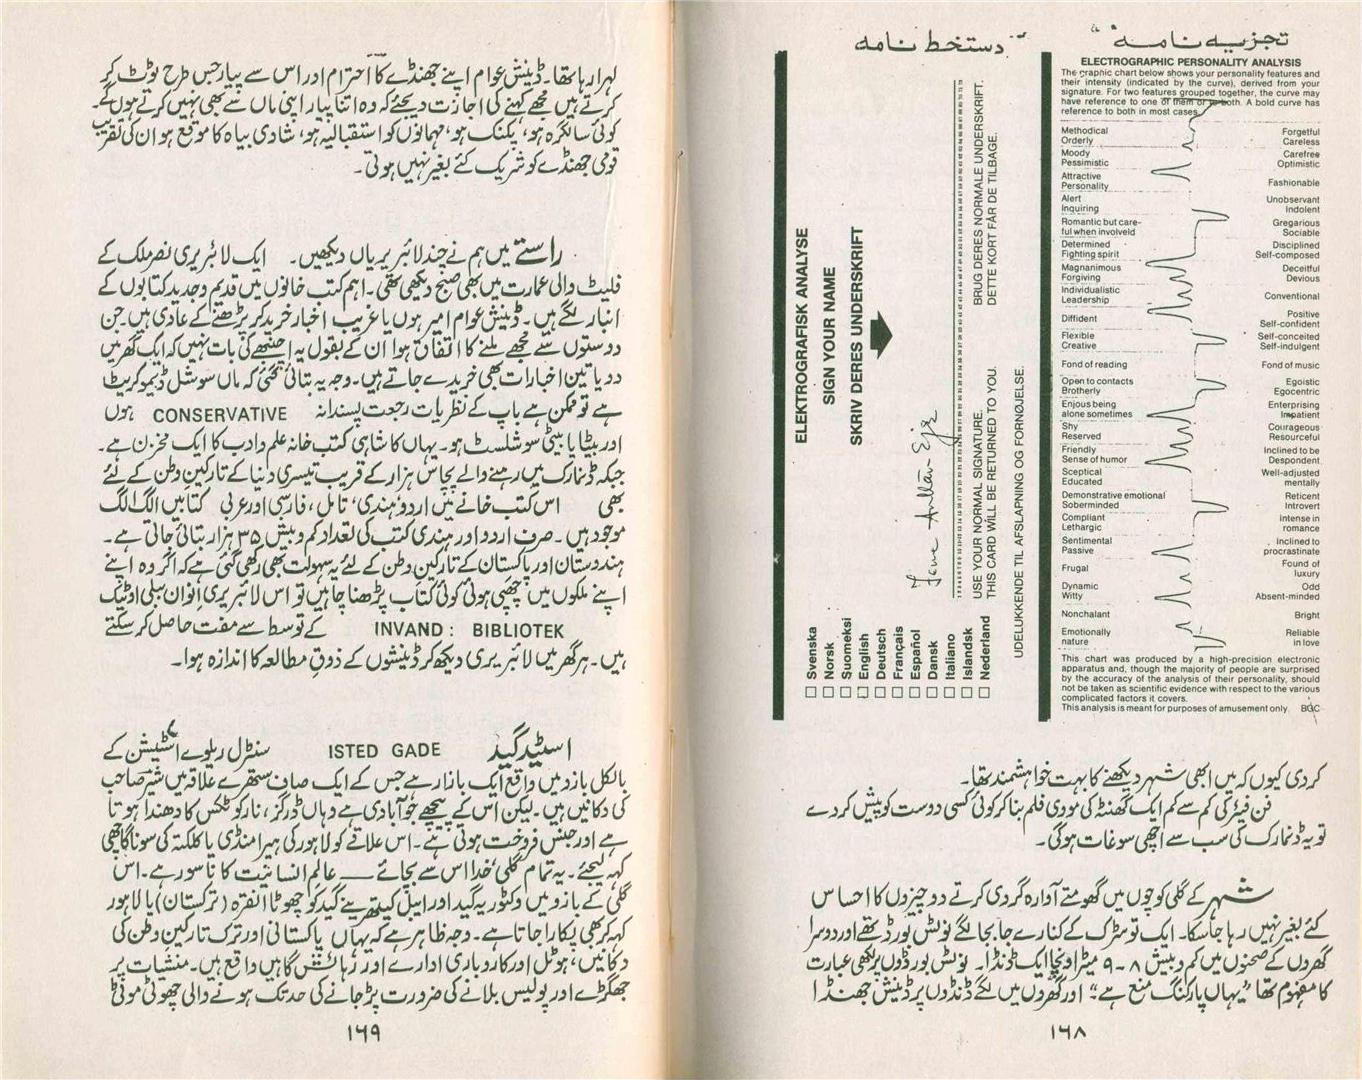 تجزیہ نامہ
"دستخط نامہ"
ELECTROGRAPHIC PERSONALITY ANALYSIS
The graphic chart below shows your personality features and
their intensity (indicated by the curve), derived from your
signature. For two features grouped together, the curve may
have reference to one of them or to both. A bold curve has
reference to both in most cases.
Methodical Orderly Forgetful Careless
Moody Pessimistic Carefree Optimistic
Attractive Personality Fashionable
Alert Inquiring Unobservant Indolent
Romantic but care-ful when involveld Gregarious Sociable
Determined Fighting spirit Disciplined Self-composed
Magnanimous Forgiving Deceitful Devious
Individualistic Leadership Conventional
Diffident Positive Self-confident
Flexible Creative Self-conceited Self-indulgent
Fond of reading Fond of music
Open to contacts Brotherly Egoistic Egocentric
Enjous being alone sometimes Enterprising Impatient
Shy Reserved Courageous Resourceful
Friendly Sense of humor Inclined to be Despondent
Sceptical Educated Well-adjusted mentally
Demonstrative emotional Soberminded Reticent Introvert
Compliant Lethargic Intense in romance
Sentimental Passive Inclined to procrastinate
Frugal Found of luxury
Dynamic Witty Odd Absent-minded
Nonchalant Bright
Emotionally nature Reliable in love
This chart was produced by a high-precision electronic
apparatus and, though the majority of people are surprised
by the accuracy of the analysis of their personality, should
not be taken as scientific evidence with respect to the various
complicated factors it covers.
This analysis is meant for purposes of amusement only. BGC
ELEKTROGRAFISK ANALYSE
SIGN YOUR NAME
SKRIV DERES UNDERSKRIFT
BRUG DERES NORMALE UNDERSKRIFT.
DETTE KORT FÅR DE TILBAGE.
USE YOUR NORMAL SIGNATURE.
THIS CARD WILL BE RETURNED TO YOU.
UDELUKKENDE TIL AFSLAPNING OG FORNØJELSE.
Svenska
Norsk
Suomeksi
English
Deutsch
Français
Español
Dansk
Italiano
Islandsk
Nederland
کردی کیوں کہ میں ابھی شہر دیکھنے کا بہت خواہشمند تھا۔
فن فیئر کی کم سے کم ایک گھنٹہ کی مووی فلم بنا کر کوئی کسی دوست کو پیش کر دے
تو یہ ڈنمارک کی سب سے اچھی سوغات ہوگی۔
شہر کے گلی کوچوں میں گھومتے آوارہ گردی کرتے دو چیزوں کا احساس
کئے بغیر نہیں رہا جاسکتا۔ ایک تو سڑک کے کنارے جابجا لگے نوٹس بورڈ تھے اور دوسرا
گھروں کے صحنوں میں کم و بیش ۸ - ۹ میٹر اونچا ایک ڈنڈا۔ نوٹس بورڈوں پر لکھی عبارت
کا مفہوم تھا "یہاں پارکنگ منع ہے" اور گھروں میں لگے ڈنڈوں پر ڈینش جھنڈا
۱۶۸
لہرا رہا تھا۔ ڈینش عوام اپنے جھنڈے کا احترام اور اس سے پیار جس طرح ٹوٹ کر
کرتے ہیں مجھے کہنے کی اجازت دیجئے کہ وہ اتنا پیار اپنی ماں سے بھی نہیں کرتے ہوں گے۔
کوئی سالگرہ ہو، پکنک ہو، مہمانوں کو استقبالیہ ہو، شادی بیاہ کا موقع ہو ان کی تقریب
قومی جھنڈے کو شریک کئے بغیر نہیں ہوتی۔
راستے میں ہم نے چند لائبریریاں دیکھیں۔ ایک لائبریری نصر ملک کے
فلیٹ والی عمارت میں بھی صبح دیکھی تھی۔ اہم کتب خانوں میں قدیم وجدید کتابوں کے
انبار لگے ہیں۔ ڈینش عوام امیر ہوں یا غریب اخبار خرید کر پڑھنے کے عادی ہیں۔ جن
دوستوں سے مجھے ملنے کا اتفاق ہوا ان کے بقول یہ اچنبھے کی بات نہیں کہ ایک گھر میں
دو یا تین اخبارات بھی خریدے جاتے ہیں۔ وجہ یہ بتائی گئی کہ ماں سوشل ڈیموکریٹ
ہے تو ممکن ہے باپ کے نظریات رجعت پسندانہ CONSERVATIVE ہوں
اور بیٹا یا بیٹی سوشلسٹ ہو۔ یہاں کا شاہی کتب خانہ علم و ادب کا ایک مخزن ہے۔
جبکہ ڈنمارک میں رہنے والے پچاس ہزار کے قریب تیسری دنیا کے تارکین وطن کے لئے
بھی اس کتب خانے میں اردو، ہندی، تامل، فارسی اور عربی کتابیں الگ الگ
موجود ہیں۔ صرف اردو اور ہندی کتب کی تعداد کم و بیش ۳۵ ہزار بتائی جاتی ہے۔
ہندوستان اور پاکستان کے تارکین وطن کے لئے یہ سہولت بھی رکھی گئی ہے کہ اگر وہ اپنے
اپنے ملکوں میں چھپی ہوئی کوئی کتاب پڑھنا چاہیں تو اس لائبریری انوان ببلی اوٹیک
INVAND : BIBLIOTEK کے توسط سے مفت حاصل کر سکتے
ہیں۔ ہر گھر میں لائبریری دیکھ کر ڈینشوں کے ذوقِ مطالعہ کا اندازہ ہوا۔
اسٹیڈ گیڈ ISTED GADE سنٹرل ریلوے اسٹیشن کے
بالکل بازو میں واقع ایک بازار ہے جس کے ایک صاف ستھرے علاقہ میں شبیر صاحب
کی دکانیں ہیں۔ لیکن اس کے پیچھے جو آبادی ہے وہاں ڈرگز، نارکوٹکس کا دھندا ہوتا
ہے اور جنس فروخت ہوتی ہے۔ اس علاقے کو لاہور کی ہیرا منڈی یا کلکتہ کی سوناگاچھی
کہہ لیجئے۔ یہ تمام گلی، خدا اس سے بچائے — عالمِ انسانیت کا ناسور ہے۔ اس
گلی کے بازو میں وکٹوریہ گیڈ اور ایبل کیتھرینے گیڈ کو چھوٹا انقرہ (ترکستان) یا لاہور
کہہ کر بھی پکارا جاتا ہے۔ وجہ ظاہر ہے کہ یہاں پاکستانی اور ترک تارکین وطن کی
دکانیں، ہوٹل اور کاروباری ادارے اور رہائش گاہیں واقع ہیں۔ منشیات پر
جھگڑے اور پولیس بلانے کی ضرورت پڑجانے کی حد تک ہونے والی چھوٹی موٹی
۱۶۹